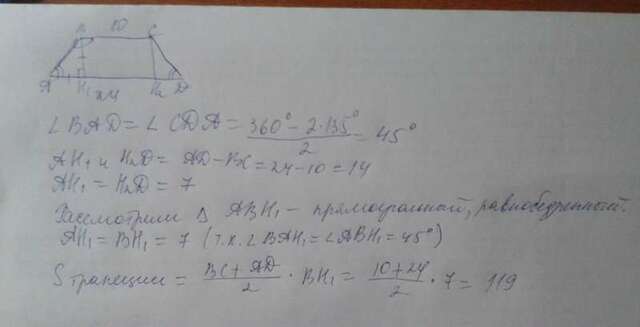 10
B C
A H₁ H₂ D
24
∠BAD = ∠CDA = (360° - 2·135°)/2 = 45°
AH₁ и H₂D = AD - BC = 24 - 10 = 14
AH₁ = H₂D = 7
Рассмотрим △ ABH₁ - прямоугольный, равнобедренный.
AH₁ = BH₁ = 7 (т.к. ∠BAH₁ = ∠ABH₁ = 45°)
S трапеции = (BC + AD)/2 · BH₁ = (10 + 24)/2 · 7 = 119